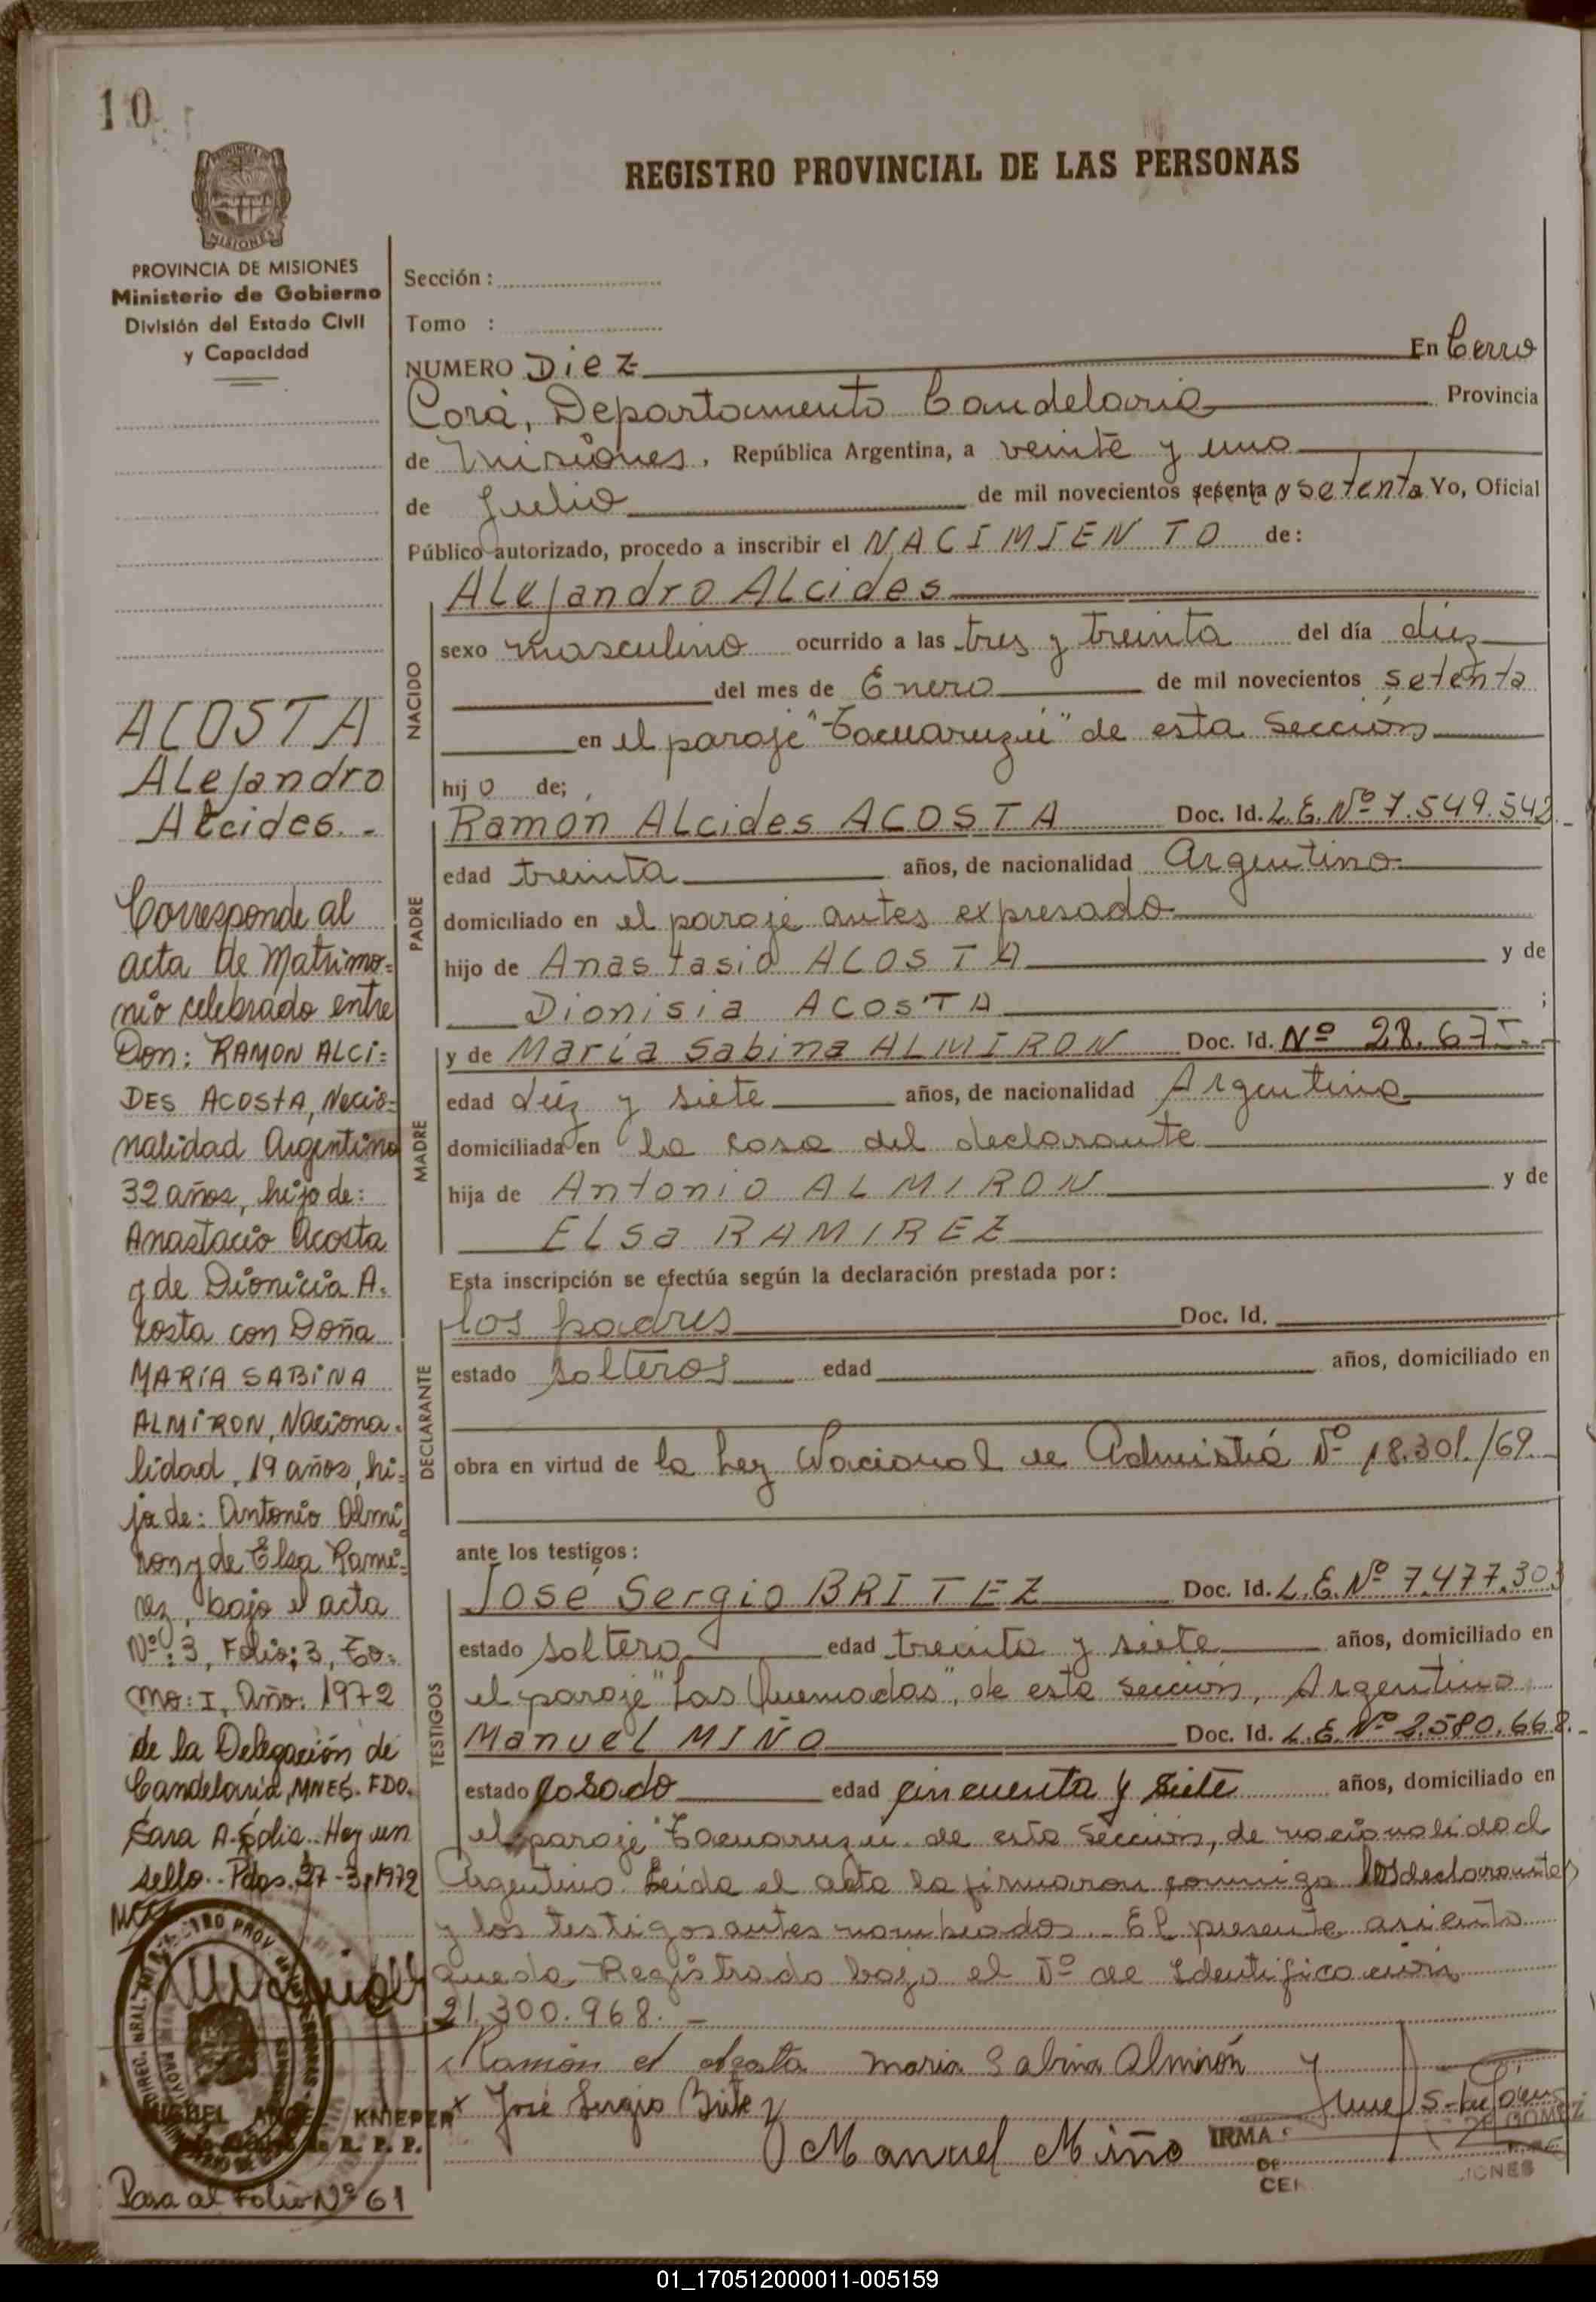 10
REGISTRO PROVINCIAL DE LAS PERSONAS
MISIONES
PROVINCIA DE MISIONES
Ministerio de Gobierno
División del Estado Civil
y Capacidad
Sección :
Tomo :
NUMERO Diez En Cerro
Corá, Departamento Candelaria Provincia
de Misiones, República Argentina, a veinte y uno
de Julio de mil novecientos sesenta y setenta Yo, Oficial
Público autorizado, procedo a inscribir el NACIMIENTO de:
NACIDO
Alejandro Alcides
sexo masculino ocurrido a las tres y treinta del día diez
del mes de Enero de mil novecientos setenta
en el paraje "Tacuaruzú" de esta Sección
hijo de;
PADRE
Ramón Alcides ACOSTA Doc. Id. L.E. Nº 7.549.542.-
edad treinta años, de nacionalidad Argentino
domiciliado en el paraje antes expresado
hijo de Anastasio ACOSTA y de
Dionisia ACOSTA ;
MADRE
y de María Sabina ALMIRON Doc. Id. Nº 28.675.-
edad diez y siete años, de nacionalidad Argentina
domiciliada en la casa del declarante
hija de Antonio ALMIRON y de
Elsa RAMIREZ
Esta inscripción se efectúa según la declaración prestada por:
DECLARANTE
los padres Doc. Id.
estado solteros edad años, domiciliado en
obra en virtud de la Ley Nacional de Nº 18.301/69.-
ante los testigos:
TESTIGOS
José Sergio BRITEZ Doc. Id. L.E. Nº 7.477.303
estado soltero edad treinta y siete años, domiciliado en
el paraje "Las Quemadas", de esta sección, Argentino
Manuel MIÑO Doc. Id. L.E. Nº 2.580.668.-
estado casado edad cincuenta y siete años, domiciliado en
el paraje Tacuaruzú de esta Sección, de nacionalidad
Argentino Leída el acta la firmaron conmigo los declarantes
y los testigos antes nombrados.- El presente asiento
queda Registrado bajo el Nº de Identificación
21.300.968.-
Ramón A Acosta Maria Sabina Almirón
x José Sergio Britez
Manuel Miño
IRMA
DE GOMEZ
DE
CER
IONES
ACOSTA
Alejandro
Alcides.-
Corresponde al
acta de Matrimo=
nio celebrado entre
Don: RAMON ALCI=
DES ACOSTA, Nacio=
nalidad Argentino
32 años, hijo de:
Anastacio Acosta
y de Dionicia A.
costa con Doña
MARIA SABINA
ALMIRON, Naciona.
lidad, 19 años, hi=
ja de: Antonio Almi
ron y de Elsa Rami=
rez, bajo el acta
Nº: 3, Folio: 3, To=
mo: I, Año: 1972
de la Delegación de
Candelaria, MNES. FDO.
Sara A. Hay un
sello.- Pdas. 27-3-1972
MIGUEL ANGEL KNIEPER
R. P. P.
Pasa al Folio Nº 61
01_170512000011-005159